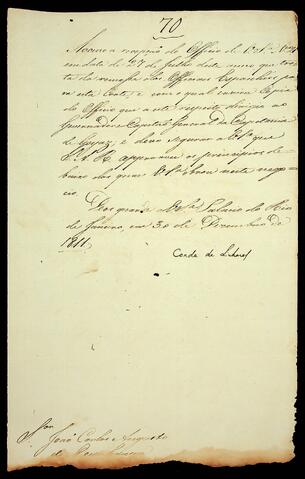 70
Accuso a recepção do Officio de V. S.ª N.º
em data de 27 de Julho deste anno que trata
da remessa dos Officiaes Espanhóes para
esta Corte, e com o qual enviou Copia do
Officio que a este respeito dirigio ao
Governador e Capitão General da Capitania
de Goyaz; e devo segurar a V. S.ª que
S. A. R. approvou os principios de
baixo dos quaes V. S.ª obrou neste nego
cio.
Deos guarde a V. S.ª Palacio do Rio
de Janeiro, em 30 de Dezembro de
1811.
Conde de Linhares
Snr. João Carlos Augusto
de